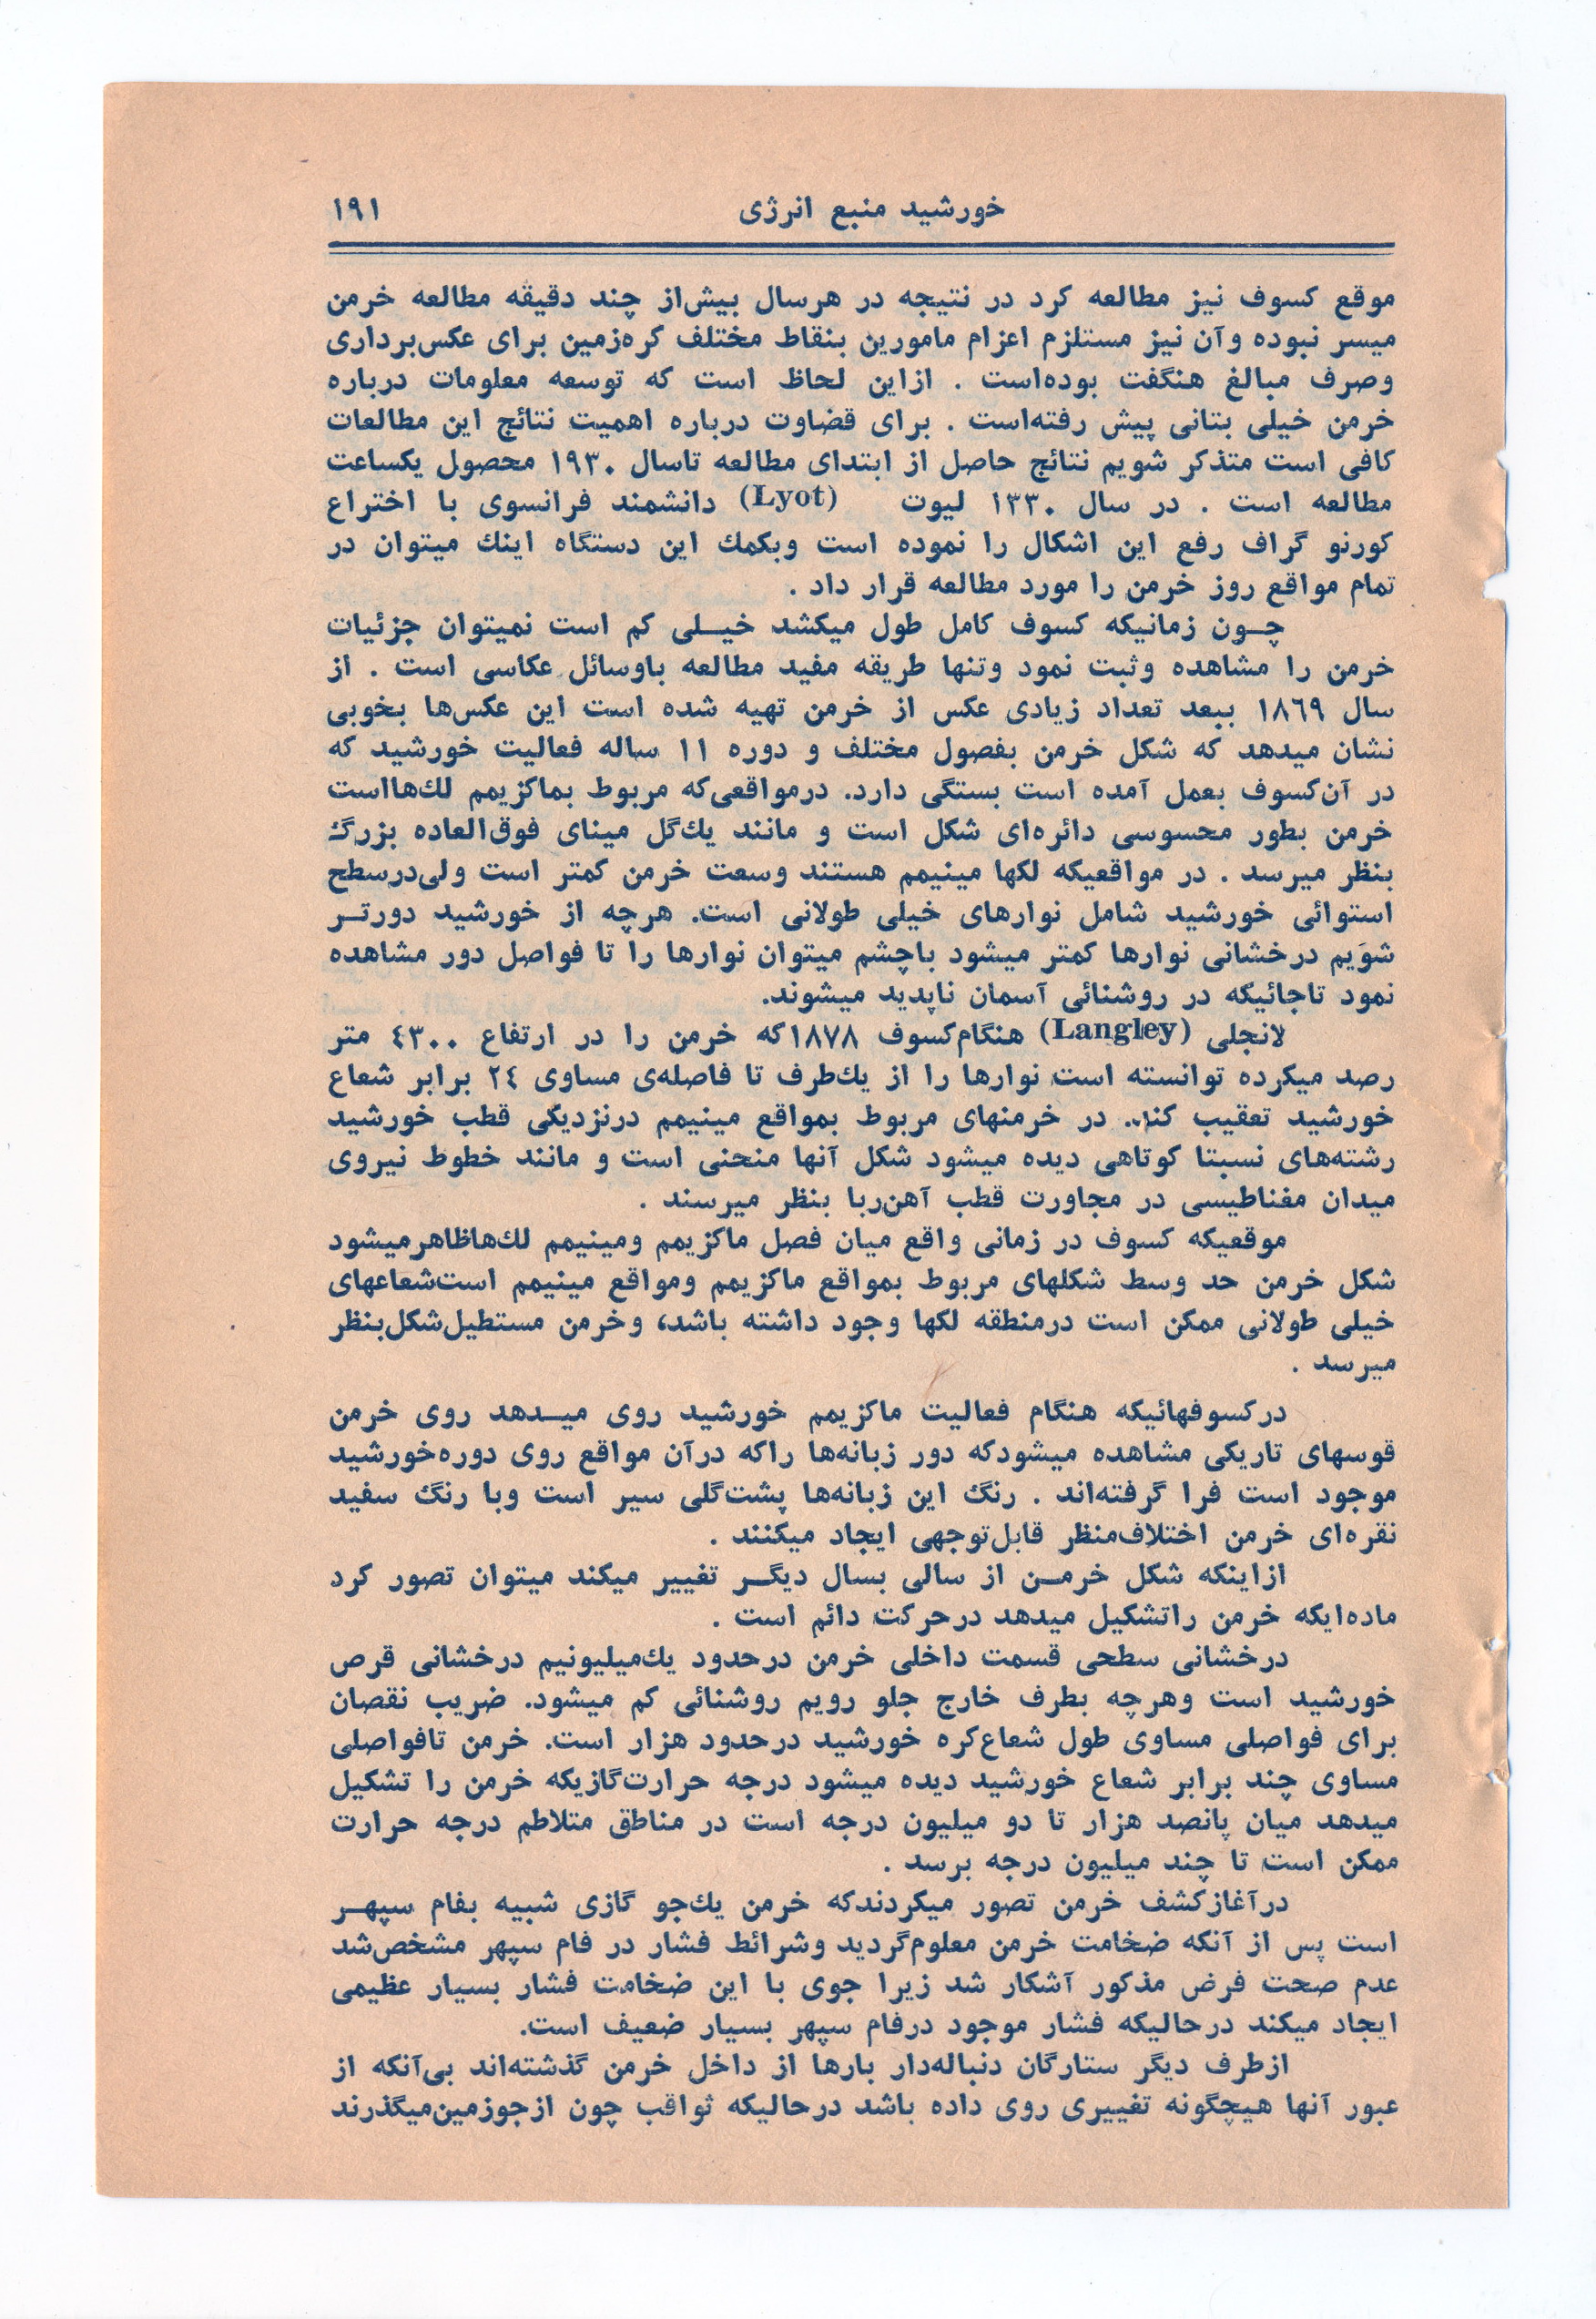 خورشید منبع انرژی
۱۹۱
موقع کسوف نیز مطالعه کرد در نتیجه در هرسال بیش‌از چند دقیقه مطالعه خرمن
میسر نبوده وآن نیز مستلزم اعزام مامورین بنقاط مختلف کره‌زمین برای عکس‌برداری
وصرف مبالغ هنگفت بوده‌است . ازاین لحاظ است که توسعه معلومات درباره
خرمن خیلی بتانی پیش رفته‌است . برای قضاوت درباره اهمیت نتائج این مطالعات
کافی است متذکر شویم نتائج حاصل از ابتدای مطالعه تاسال ۱۹۳۰ محصول یکساعت
مطالعه است . در سال ۱۳۳۰ لیوت (Lyot) دانشمند فرانسوی با اختراع
کورنو گراف رفع این اشکال را نموده است وبکمك این دستگاه اینك میتوان در
تمام مواقع روز خرمن را مورد مطالعه قرار داد .
چـون زمانیکه کسوف کامل طول میکشد خیـلی کم است نمیتوان جزئیات
خرمن را مشاهده وثبت نمود وتنها طریقه مفید مطالعه باوسائل عکاسی است . از
سال ۱۸٦۹ ببعد تعداد زیادی عکس از خرمن تهیه شده است این عکس‌ها بخوبی
نشان میدهد که شکل خرمن بفصول مختلف و دوره ۱۱ ساله فعالیت خورشید که
در آن‌کسوف بعمل آمده است بستگی دارد. درمواقعی‌که مربوط بماکزیمم لك‌هااست
خرمن بطور محسوسی دائره‌ای شکل است و مانند یك‌گل مینای فوق‌العاده بزرگ
بنظر میرسد . در مواقعیکه لکها مینیمم هستند وسعت خرمن کمتر است ولی‌درسطح
استوائی خورشید شامل نوارهای خیلی طولانی است. هرچه از خورشید دورتـر
شوَیم درخشانی نوارها کمتر میشود باچشم میتوان نوارها را تا فواصل دور مشاهده
نمود تاجائیکه در روشنائی آسمان ناپدید میشوند.
لانجلی (Langley) هنگام‌کسوف ۱۸۷۸که خرمن را در ارتفاع ٤۳۰۰ متر
رصد میکرده توانسته است نوارها را از یك‌طرف تا فاصله‌ی مساوی ۲٤ برابر شعاع
خورشید تعقیب کند. در خرمنهای مربوط بمواقع مینیمم درنزدیکی قطب خورشید
رشته‌های نسبتا کوتاهی دیده میشود شکل آنها منحنی است و مانند خطوط نیروی
میدان مغناطیسی در مجاورت قطب آهن‌ربا بنظر میرسند .
موقعیکه کسوف در زمانی واقع میان فصل ماکزیمم ومینیمم لك‌هاظاهرمیشود
شکل خرمن حد وسط شکلهای مربوط بمواقع ماکزیمم ومواقع مینیمم است‌شعاعهای
خیلی طولانی ممکن است درمنطقه لکها وجود داشته باشد، وخرمن مستطیل‌شکل‌بنظر
میرسد .
درکسوفهائیکه هنگام فعالیت ماکزیمم خورشید روی میـدهد روی خرمن
قوسهای تاریکی مشاهده میشودکه دور زبانه‌ها راکه درآن مواقع روی دوره‌خورشید
موجود است فرا گرفته‌اند . رنگ این زبانه‌ها پشت‌گلی سیر است وبا رنگ سفید
نقره‌ای خرمن اختلاف‌منظر قابل‌توجهی ایجاد میکنند .
ازاینکه شکل خرمـن از سالی بسال دیگـر تغییر میکند میتوان تصور کرد
ماده‌ایکه خرمن راتشکیل میدهد درحرکت دائم است .
درخشانی سطحی قسمت داخلی خرمن درحدود یك‌میلیونیم درخشانی قرص
خورشید است وهرچه بطرف خارج جلو رویم روشنائی کم میشود. ضریب نقصان
برای فواصلی مساوی طول شعاع‌کره خورشید درحدود هزار است. خرمن تافواصلی
مساوی چند برابر شعاع خورشید دیده میشود درجه حرارت‌گازیکه خرمن را تشکیل
میدهد میان پانصد هزار تا دو میلیون درجه است در مناطق متلاطم درجه حرارت
ممکن است تا چند میلیون درجه برسد .
درآغازکشف خرمن تصور میکردندکه خرمن یك‌جو گازی شبیه بفام سپهـر
است پس از آنکه ضخامت خرمن معلوم‌گردید وشرائط فشار در فام سپهر مشخص‌شد
عدم صحت فرض مذکور آشکار شد زیرا جوی با این ضخامت فشار بسیار عظیمی
ایجاد میکند درحالیکه فشار موجود درفام سپهر بسیار ضعیف است.
ازطرف دیگر ستارگان دنباله‌دار بارها از داخل خرمن گذشته‌اند بی‌آنکه از
عبور آنها هیچگونه تغییری روی داده باشد درحالیکه ثواقب چون ازجوزمین‌میگذرند